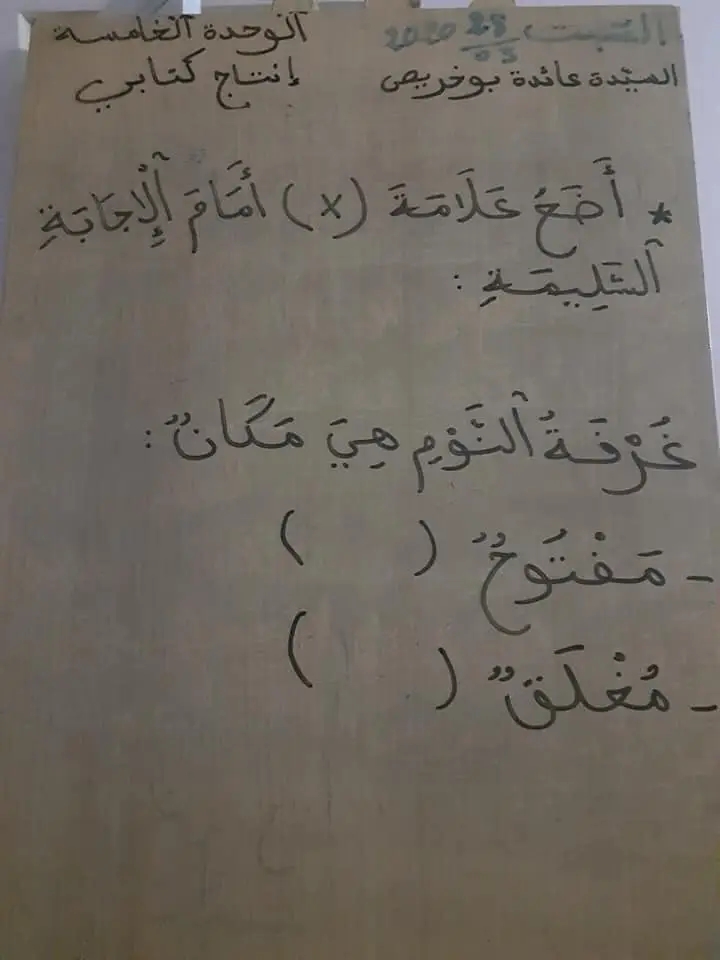 السّبت 28/03 2020 الوحدة الخامسة
السيّدة عائدة بوخريص إنتاج كتابي
* أَضَعُ عَلَامَةَ (x) أَمَامَ ٱلْإِجَابَةِ
ٱلسَّلِيمَةِ :
غُرْفَةُ ٱلنَّوْمِ هِيَ مَكَانٌ :
- مَفْتُوحٌ ( )
- مُغْلَقٌ ( )